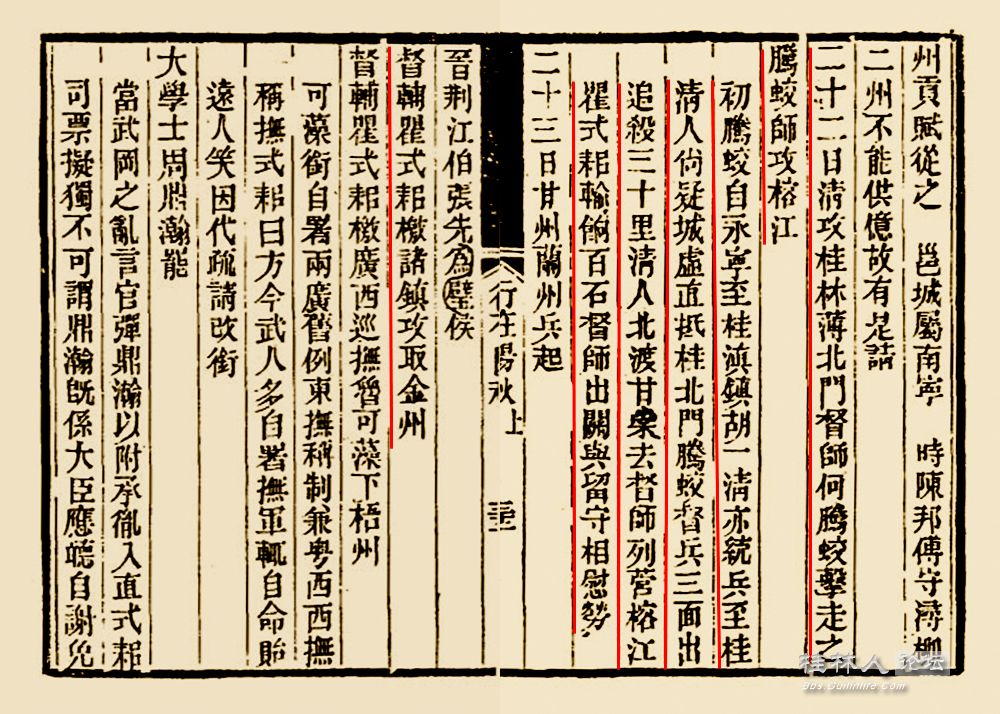 州貢賦從之　邕城屬南寧　時陳邦傅守潯柳
二州不能供億故有是請
二十二日清攻桂林薄北門督師何騰蛟擊走之
騰蛟師攻榕江
初騰蛟自永寧至桂滇鎮胡一清亦統兵至桂
清人尙疑城虛直抵桂北門騰蛟督兵三面出
追殺三十里清人北渡甘棠去督師列營榕江
瞿式耜輸餉百石督師出關與留守相慰勞
二十三日甘州蘭州兵起
行在陽秋上
晉荆江伯張先璧爲侯
督輔瞿式耜檄諸鎮攻取金州
督輔瞿式耜檄廣西巡撫魯可藻下梧州
可藻銜自署兩廣舊例東撫稱制兼粤西西撫
稱撫式耜曰方今武人多自署撫軍輒自命貽
遠人笑因代疏請改銜
大學士周鼎瀚罷
當武岡之亂言官彈鼎瀚以附承胤入直式耜
司票擬獨不可謂鼎瀚旣係大臣應聽自謝免
桂林人论坛
bbs.Guilinlife.com